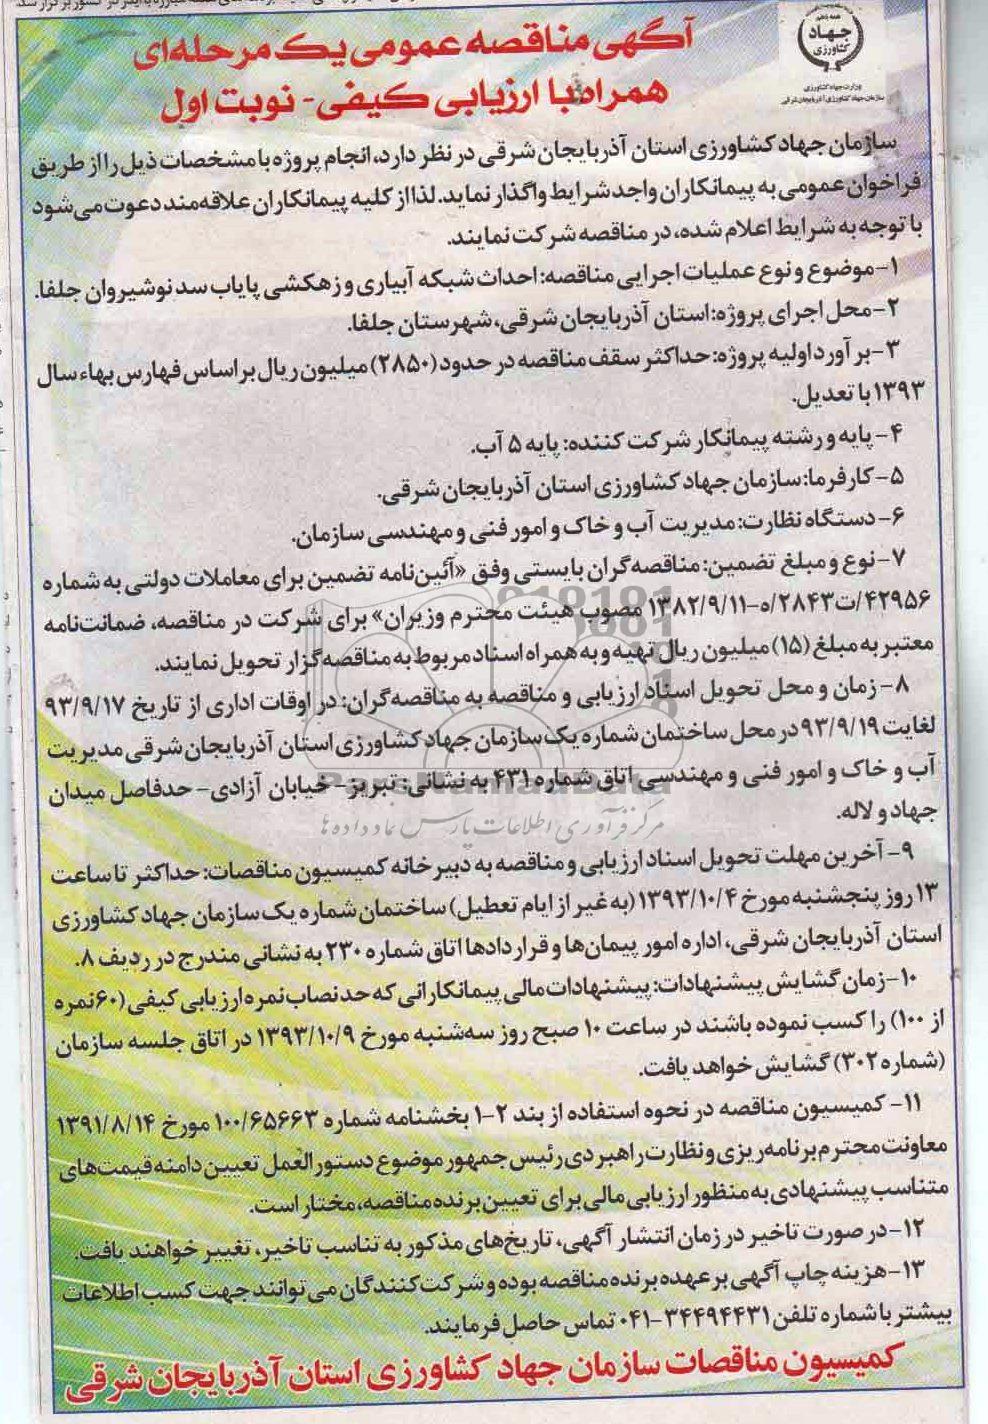 جهاد
کشاورزی
وزارت جهاد کشاورزی
سازمان جهاد کشاورزی آذربایجان شرقی
آگهی مناقصه عمومی یک مرحله‌ای
همراه با ارزیابی کیفی - نوبت اول
سازمان جهاد کشاورزی استان آذربایجان شرقی در نظر دارد، انجام پروژه با مشخصات ذیل را از طریق
فراخوان عمومی به پیمانکاران واجد شرایط واگذار نماید. لذا از کلیه پیمانکاران علاقه‌مند دعوت می‌شود
با توجه به شرایط اعلام شده، در مناقصه شرکت نمایند.
۱- موضوع و نوع عملیات اجرایی مناقصه: احداث شبکه آبیاری و زهکشی پایاب سد نوشیروان جلفا.
۲- محل اجرای پروژه: استان آذربایجان شرقی، شهرستان جلفا.
۳- برآورد اولیه پروژه: حداکثر سقف مناقصه در حدود (۲۸۵۰) میلیون ریال بر اساس فهارس بهاء سال
۱۳۹۳ با تعدیل.
۴- پایه و رشته پیمانکار شرکت کننده: پایه ۵ آب.
۵- کارفرما: سازمان جهاد کشاورزی استان آذربایجان شرقی.
۶- دستگاه نظارت: مدیریت آب و خاک و امور فنی و مهندسی سازمان.
۷- نوع و مبلغ تضمین: مناقصه‌گران بایستی وفق «آئین‌نامه تضمین برای معاملات دولتی به شماره
۴۲۹۵۶/ت۲۸۴۳/ه-۱۳۸۲/۹/۱۱ مصوب هیئت محترم وزیران» برای شرکت در مناقصه، ضمانت‌نامه
معتبر به مبلغ (۱۵) میلیون ریال تهیه و به همراه اسناد مربوط به مناقصه‌گزار تحویل نمایند.
۸- زمان و محل تحویل اسناد ارزیابی و مناقصه به مناقصه‌گران: در اوقات اداری از تاریخ ۹۳/۹/۱۷
لغایت ۹۳/۹/۱۹ در محل ساختمان شماره یک سازمان جهاد کشاورزی استان آذربایجان شرقی مدیریت
آب و خاک و امور فنی و مهندسی اتاق شماره ۴۳۱ به نشانی: تبریز - خیابان آزادی - حدفاصل میدان
جهاد و لاله.
مرکز فرآوری اطلاعات پارس نماد داده‌ها
۹- آخرین مهلت تحویل اسناد ارزیابی و مناقصه به دبیرخانه کمیسیون مناقصات: حداکثر تا ساعت
۱۳ روز پنجشنبه مورخ ۱۳۹۳/۱۰/۴ (به غیر از ایام تعطیل) ساختمان شماره یک سازمان جهاد کشاورزی
استان آذربایجان شرقی، اداره امور پیمان‌ها و قراردادها اتاق شماره ۲۳۰ به نشانی مندرج در ردیف ۸.
۱۰- زمان گشایش پیشنهادات: پیشنهادات مالی پیمانکارانی که حد نصاب نمره ارزیابی کیفی (۶۰ نمره
از ۱۰۰) را کسب نموده باشند در ساعت ۱۰ صبح روز سه‌شنبه مورخ ۱۳۹۳/۱۰/۹ در اتاق جلسه سازمان
(شماره ۳۰۲) گشایش خواهد یافت.
۱۱- کمیسیون مناقصه در نحوه استفاده از بند ۲-۱ بخشنامه شماره ۱۰۰/۶۵۶۶۳ مورخ ۱۳۹۱/۸/۱۴
معاونت محترم برنامه‌ریزی و نظارت راهبردی رئیس جمهور موضوع دستورالعمل تعیین دامنه قیمت‌های
متناسب پیشنهادی به منظور ارزیابی مالی برای تعیین برنده مناقصه، مختار است.
۱۲- در صورت تاخیر در زمان انتشار آگهی، تاریخ‌های مذکور به تناسب تاخیر، تغییر خواهند یافت.
۱۳- هزینه چاپ آگهی بر عهده برنده مناقصه بوده و شرکت‌کنندگان می‌توانند جهت کسب اطلاعات
بیشتر با شماره تلفن ۳۴۴۹۴۴۳۱-۰۴۱ تماس حاصل فرمایند.
کمیسیون مناقصات سازمان جهاد کشاورزی استان آذربایجان شرقی